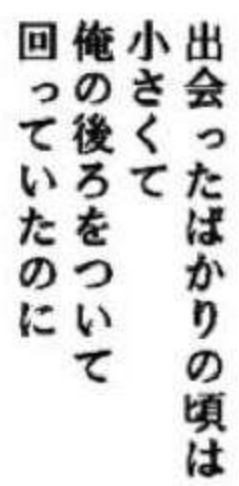 出会ったばかりの頃は
小さくて
俺の後ろをついて
回っていたのに